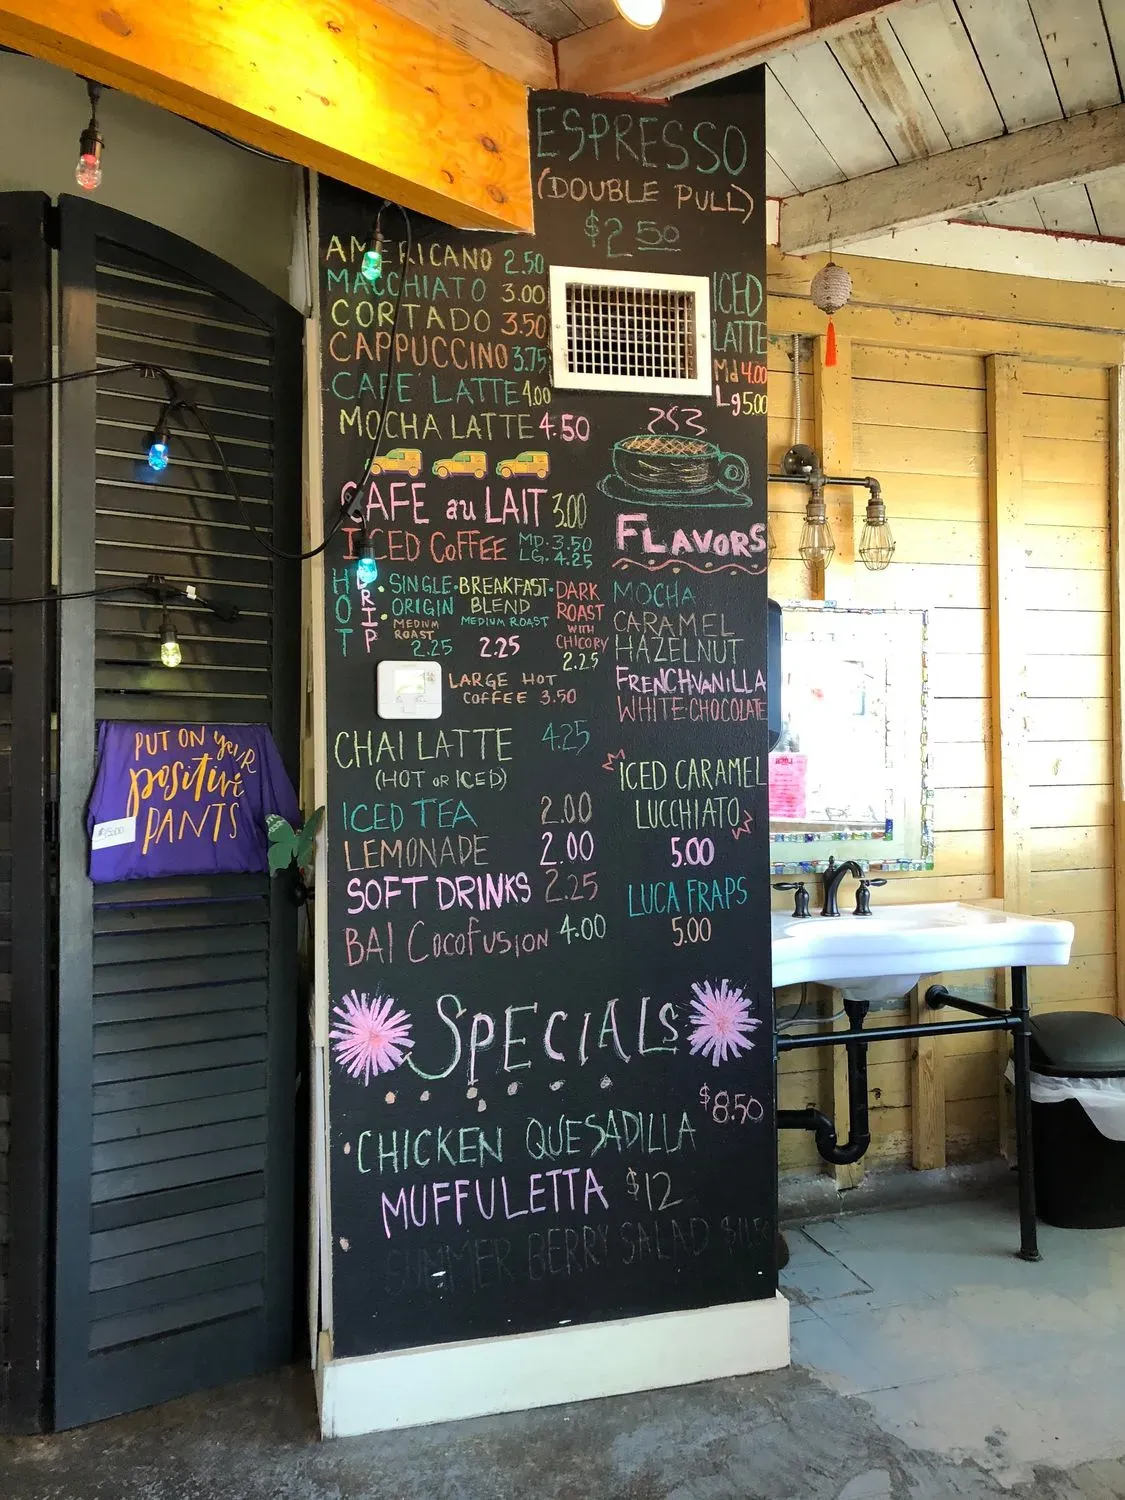 ESPRESSO
(DOUBLE PULL)
$2.50
AMERICANO 2.50
MACCHIATO 3.00
CORTADO 3.50
CAPPUCCINO 3.75
CAFE LATTE 4.00
MOCHA LATTE 4.50
ICED
LATTE
Md 4.00
Lg 5.00
CAFE au LAIT 3.00
ICED COFFEE MD. 3.50
LG. 4.25
HOT
DRIP
• SINGLE
ORIGIN
MEDIUM
ROAST
2.25
• BREAKFAST
BLEND
MEDIUM ROAST
2.25
• DARK
ROAST
WITH
CHICORY
2.25
LARGE HOT
COFFEE 3.50
CHAI LATTE 4.25
(HOT OR ICED)
ICED TEA 2.00
LEMONADE 2.00
SOFT DRINKS 2.25
BAI COCOFUSION 4.00
FLAVORS
MOCHA
CARAMEL
HAZELNUT
FRENCH VANILLA
WHITE CHOCOLATE
ICED CARAMEL
LUCCHIATO
5.00
LUCA FRAPS
5.00
SPECIALS
• CHICKEN QUESADILLA $8.50
MUFFULETTA $12
SUMMER BERRY SALAD
PUT ON YOUR
positive
PANTS